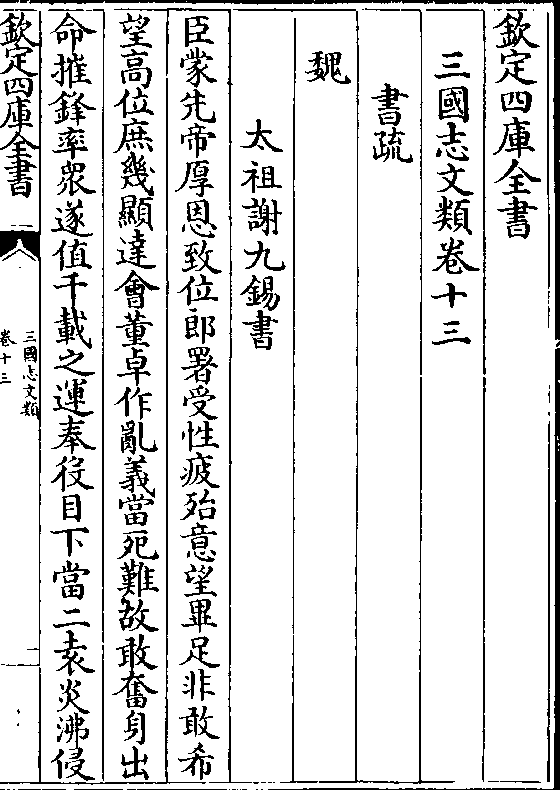 欽定四庫全書
三國志文類卷十三
書疏
魏
太祖謝九錫書
臣蒙先帝厚恩致位郎署受性疲殆意望畢足非敢希
望高位庶幾顯達會董卓作亂義當死難故敢奮身出
命摧鋒率衆遂值千載之運奉役目下當二袁炎沸侵
欽定四庫全書
三國志文類
卷十三
一